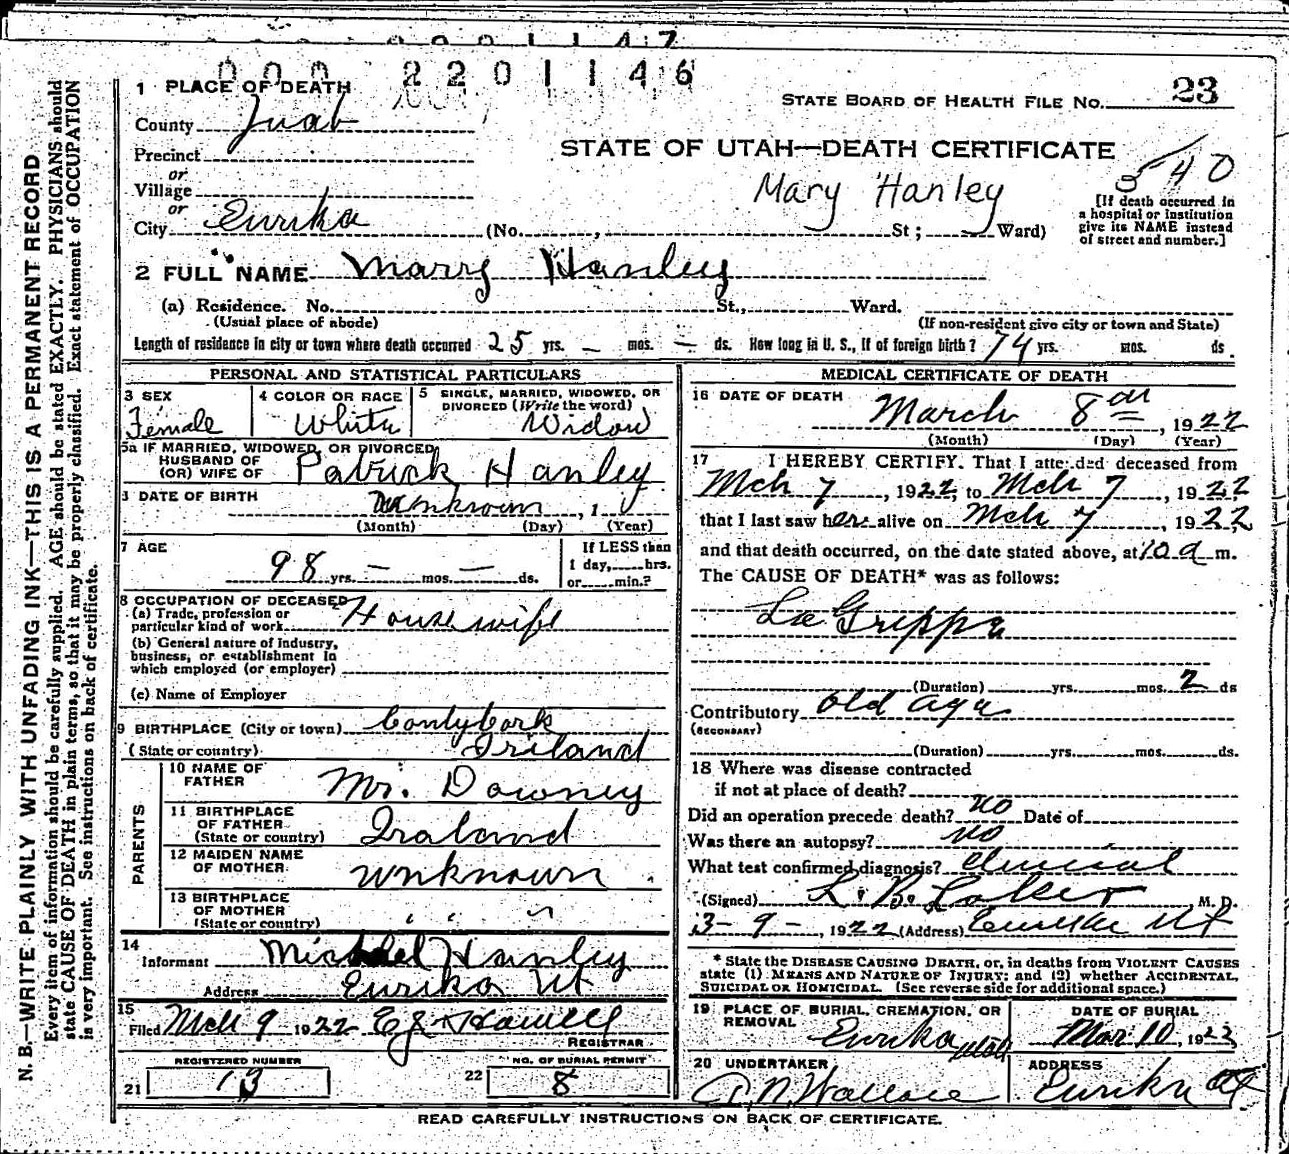 000 2201146
1 PLACE OF DEATH
STATE BOARD OF HEALTH FILE NO. 23
County Juab
STATE OF UTAH—DEATH CERTIFICATE
Precinct
or
Village
Mary Hanley
540
or
City Eurika (No. , St ; Ward)
[If death occurred in
a hospital or institution
give its NAME instead
of street and number.]
2 FULL NAME Marry Hanley
(a) Residence. No. St., Ward.
(Usual place of abode) (If non-resident give city or town and State)
Length of residence in city or town where death occurred 25 yrs. — mos. — ds. How long in U. S., if of foreign birth? 74 yrs. mos. ds.
PERSONAL AND STATISTICAL PARTICULARS
3 SEX
Female
4 COLOR OR RACE
White
5 SINGLE, MARRIED, WIDOWED, OR
DIVORCED (Write the word)
Widow
5a IF MARRIED, WIDOWED, OR DIVORCED
HUSBAND OF
(OR) WIFE OF Patrick Hanley
DATE OF BIRTH unknown , 1
(Month) (Day) (Year)
7 AGE
98 yrs. — mos. — ds.
If LESS than
1 day,.....hrs.
or.....min.?
8 OCCUPATION OF DECEASED
(a) Trade, profession or
particular kind of work Housewife
(b) General nature of industry,
business, or establishment in
which employed (or employer)
(c) Name of Employer
9 BIRTHPLACE (City or town) Contybork
(State or country) Iriland
PARENTS
10 NAME OF
FATHER Mr. Downey
11 BIRTHPLACE
OF FATHER
(State or country) Iraland
12 MAIDEN NAME
OF MOTHER unknown
13 BIRTHPLACE
OF MOTHER
(State or country) " "
14
Informant Michael Hanley
Address Eurika Ut
15
Filed Mch 9 1922 E J Howell
REGISTRAR
REGISTERED NUMBER
21 13
NO. OF BURIAL PERMIT
22 8
MEDICAL CERTIFICATE OF DEATH
16 DATE OF DEATH
March 8 , 1922
(Month) (Day) (Year)
17 I HEREBY CERTIFY, That I attended deceased from
Mch 7 , 1922, to Mch 7 , 1922
that I last saw her alive on Mch 7 , 1922,
and that death occurred, on the date stated above, at 10 a m.
The CAUSE OF DEATH* was as follows:
La Grippe
(Duration) yrs. mos. 2 ds
Contributory Old Age
(SECONDARY)
(Duration) yrs. mos. ds.
18 Where was disease contracted
if not at place of death?
Did an operation precede death? no Date of
Was there an autopsy? no
What test confirmed diagnosis? clinical
(Signed) L. B. M. D.
3-9-, 1922 (Address) Eureka Ut
* State the DISEASE CAUSING DEATH, or, in deaths from VIOLENT CAUSES
state (1) MEANS AND NATURE OF INJURY; and (2) whether ACCIDENTAL,
SUICIDAL OR HOMICIDAL. (See reverse side for additional space.)
19 PLACE OF BURIAL, CREMATION, OR
REMOVAL
Eurika Utah
DATE OF BURIAL
Mar 10, 1922
20 UNDERTAKER
A. N. Wallace
ADDRESS
Eurika Ut
READ CAREFULLY INSTRUCTIONS ON BACK OF CERTIFICATE.
N. B.—WRITE PLAINLY WITH UNFADING INK—THIS IS A PERMANENT RECORD
Every item of information should be carefully supplied. AGE should be stated EXACTLY. PHYSICIANS should
state CAUSE OF DEATH in plain terms, so that it may be properly classified. Exact statement of OCCUPATION
is very important. See instructions on back of certificate.